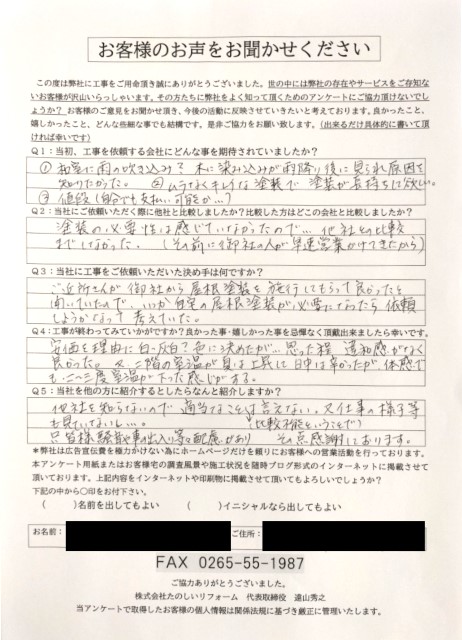 お客様のお声をお聞かせください
この度は弊社に工事をご用命頂き誠にありがとうございました。世の中には弊社の存在やサービスをご存知な
いお客様が沢山いらっしゃいます。その方たちに弊社をよく知って頂くためのアンケートにご協力頂けないでし
ょうか？ お客様のご意見をお聞かせ頂き、今後の活動に反映させていきたいと考えております。良かったこと、
嬉しかったこと、どんな些細な事でも結構です。是非ご協力をお願い致します。（出来るだけ具体的に書いて頂
ければ幸いです）
Q１：当初、工事を依頼する会社にどんな事を期待されていましたか？
① 和室に雨の吹き込み？ 木に染み込みが雨降り後に見られ原因を
知りたかった。 ② ムラなくキレイな塗装で 塗装が長持ちして欲しい。
③ 値段（ でも支払い可能か…？）
Q２：当社にご依頼いただく際に他社と比較しましたか？比較した方はどこの会社と比較しましたか？
塗装の必要性は感じていなかったので… 他社との比較
までしてなかった。（その前に御社の人が早速営業かけてきたから）
Q３：当社に工事をご依頼いただいた決め手は何ですか？
ご近所さんが御社から屋根塗装を施行してもらって良かったと
聞いていたので、いつか自宅の屋根塗装が必要になったら依頼
しようかなって考えていた。
Q４：工事が終わってみていかがですか？良かった事・嬉しかった事を忌憚なく頂戴出来ましたら幸いです。
安価を理由に白っぽい？色に決めたが…思った程 違和感がなく
良かった。又、二階の室温が夏は工具して日中は辛かったが、体感で
も二〜三度室温が下った感じがする。
Q５：当社を他の方に紹介するとしたらなんと紹介しますか？
他社を知らないので 適当なことは言えない。又仕事の様子等
も見ていないし…。 （比較不能ということで）
只皆様騒音や車の出入り等々配慮があり その点感謝しております。
＊弊社は広告宣伝費を極力かけない為にホームページだけを頼りにお客様への営業活動を行っております。
本アンケート用紙またはお客様宅の調査風景や施工状況を随時ブログ形式のインターネットに掲載させて
頂いております。上記内容をインターネットや印刷物に掲載させて頂いてもよろしいでしょうか？
下記の中から〇印をお付下さい。
（ ）名前を出してもよい （ ）イニシャルなら出してもよい
お名前： ご住所：
FAX 0265-55-1987
ご協力ありがとうございました。
株式会社たのしいリフォーム 代表取締役 遠山秀之
当アンケートで取得したお客様の個人情報は関係法規に基づき厳正に管理いたします。